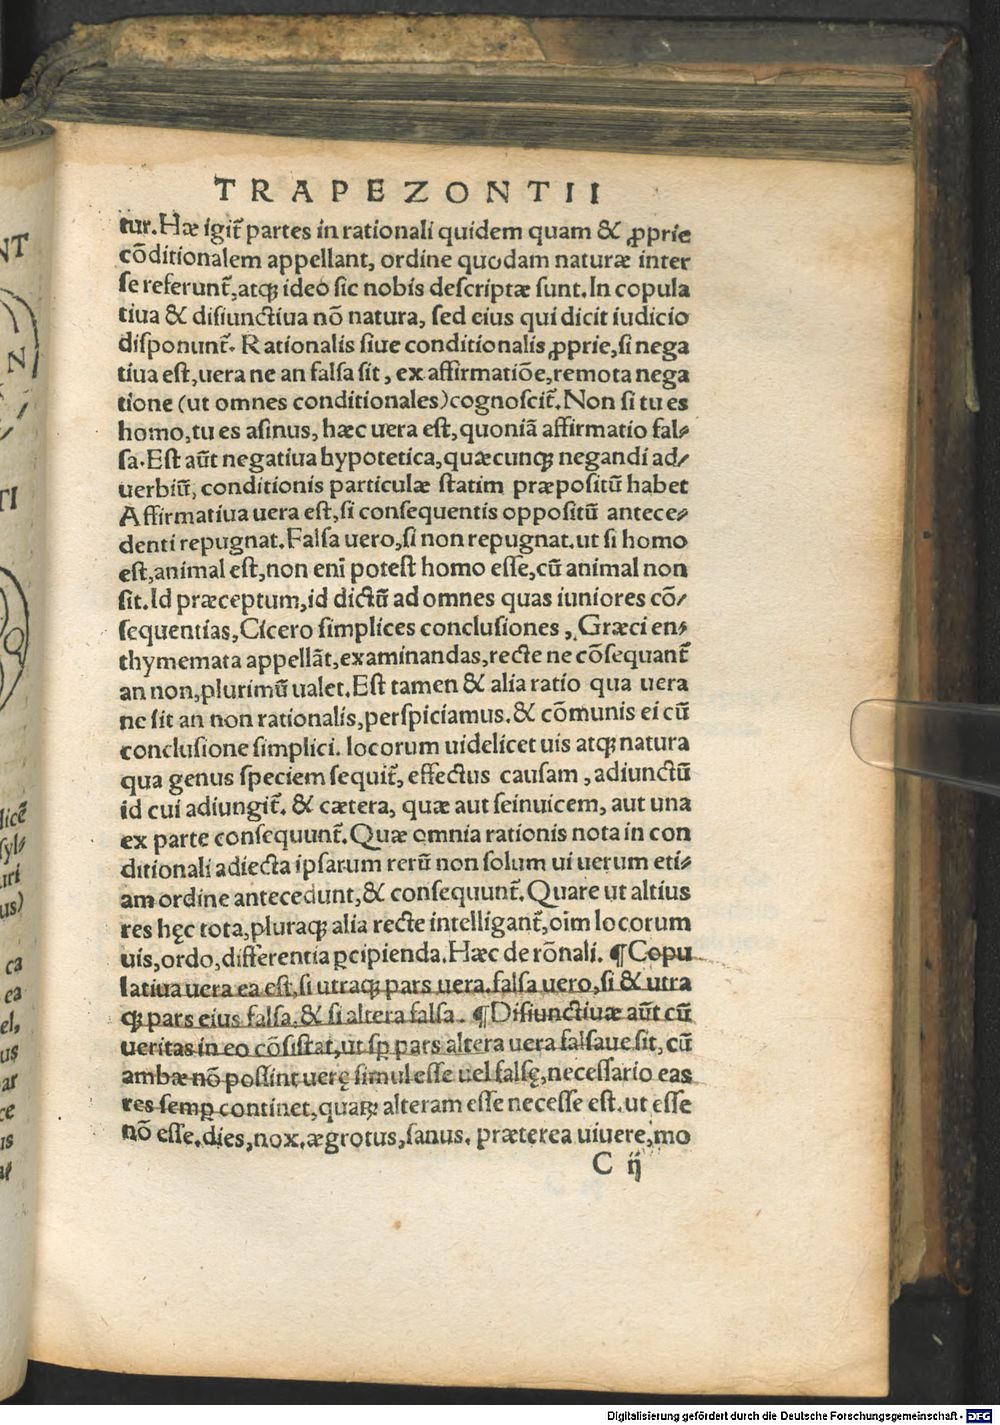 TRAPEZONTII
tur. Hæ igit̃ partes in rationali quidem quam & ꝓprie
cōditionalem appellant, ordine quodam naturæ inter
ſe referunt̃, atqꝫ ideo ſic nobis deſcriptæ ſunt. In copula
tiua & diſiunctiua nō natura, ſed eius qui dicit iudicio
diſponunt̃. Rationalis ſiue conditionalis ꝓprie, ſi nega
tiua eſt, uera ne an falſa ſit, ex affirmatiōe, remota nega
tione (ut omnes conditionales) cognoſcit̃. Non ſi tu es
homo, tu es aſinus, hæc uera eſt, quoniã affirmatio fal⸗
ſa. Eſt aũt negatiua hypotetica, quæcunqꝫ negandi ad⸗
uerbiũ, conditionis particulæ ſtatim præpoſitũ habet
Affirmatiua uera eſt, ſi conſequentis oppoſitũ antece⸗
denti repugnat. Falſa uero, ſi non repugnat. ut ſi homo
eſt, animal eſt, non enĩ poteſt homo eſſe, cũ animal non
ſit. Id præceptum, id dictũ ad omnes quas iuniores cō⸗
ſequentias, Cicero ſimplices concluſiones, Græci en⸗
thymemata appellãt, examinandas, recte ne cōſequant̃
an non, plurimũ ualet. Eſt tamen & alia ratio qua uera
ne ſit an non rationalis, perſpiciamus. & cōmunis ei cũ
concluſione ſimplici. locorum uidelicet uis atqꝫ natura
qua genus ſpeciem ſequit̃, effectus cauſam, adiunctũ
id cui adiungit̃. & cætera, quæ aut ſeinuicem, aut una
ex parte conſequunt̃. Quæ omnia rationis nota in con
ditionali adiecta ipſarum rerũ non ſolum ui uerum eti⸗
am ordine antecedunt, & conſequunt̃. Quare ut altius
res hęc tota, pluraqꝫ alia recte intelligant̃, oīm locorum
uis, ordo, differentia ꝑcipienda. Hæc de rōnali. ¶ Copu
latiua uera ea eſt, ſi utraqꝫ pars uera. falſa uero, ſi & utra
qꝫ pars eius falſa. & ſi altera falſa. ¶ Diſiunctiuæ aũt cũ
ueritas in eo cōſiſtat, ut ſꝑ pars altera uera falſaue ſit, cũ
ambæ nō poſſint uerę ſimul eſſe uel falſę, neceſſario eas
res ſemꝑ continet, quaꝝ alteram eſſe neceſſe eſt. ut eſſe
nō eſſe. dies, nox. ægrotus, ſanus. præterea uiuere, mo
C ij
NT
N
TI
licẽ
ſyl⸗
uri
us)
ca
ea
el,
us
ar
ce
us
Digitalisierung gefördert durch die Deutsche Forschungsgemeinschaft - DFG